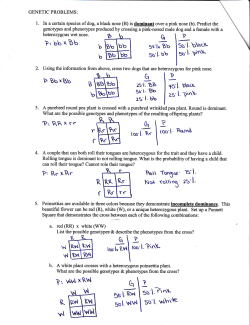 GENETIC PROBLEMS:
1. In a certain species of dog, a black nose (B) is dominant over a pink nose (b). Predict the
genotypes and phenotypes produced by crossing a pink-nosed male dog and a female with a
heterozygous wet nose.
P: bb x Bb
B b
b Bb bb
b Bb bb
G P
50% Bb 50% black
50% bb 50% pink
2. Using the information from above, cross two dogs that are heterozygous for pink nose.
P Bb x Bb
B b
B BB Bb
b Bb bb
G P
25% BB 75% black
50% Bb
25% bb 25% pink
3. A purebred round pea plant is crossed with a purebred wrinkled pea plant. Round is dominant.
What are the possible genotypes and phenotypes of the resulting offspring plants?
P: RR x rr
R R
r Rr Rr
r Rr Rr
G P
100% Rr 100% Round
4. A couple that can both roll their tongues are heterozygous for the trait and they have a child.
Rolling tongue is dominant to not rolling tongue. What is the probability of having a child that
can roll their tongue? Cannot role their tongue?
P: Rr x Rr
R r
R RR Rr
r Rr rr
Roll Tongue 75%
Not rolling 25%
5. Poinsettias are available in three colors because they demonstrate incomplete dominance. This
beautiful flower can be red (R), white (W), or a unique heterozygous pink. Set up a Punnett
Square that demonstrates the cross between each of the following combinations:
a. red (RR) x white (WW)
List the possible genotypes & describe the phenotypes from the cross?
R R
W RW RW
W RW RW
G P
100% RW 100% Pink
b. A white plant crosses with a heterozygous poinsettia plant.
What are the possible genotypes & phenotypes from the cross?
P: WW x RW
W W
R RW RW
W WW WW
G P
50% RW 50% Pink
50% WW 50% White